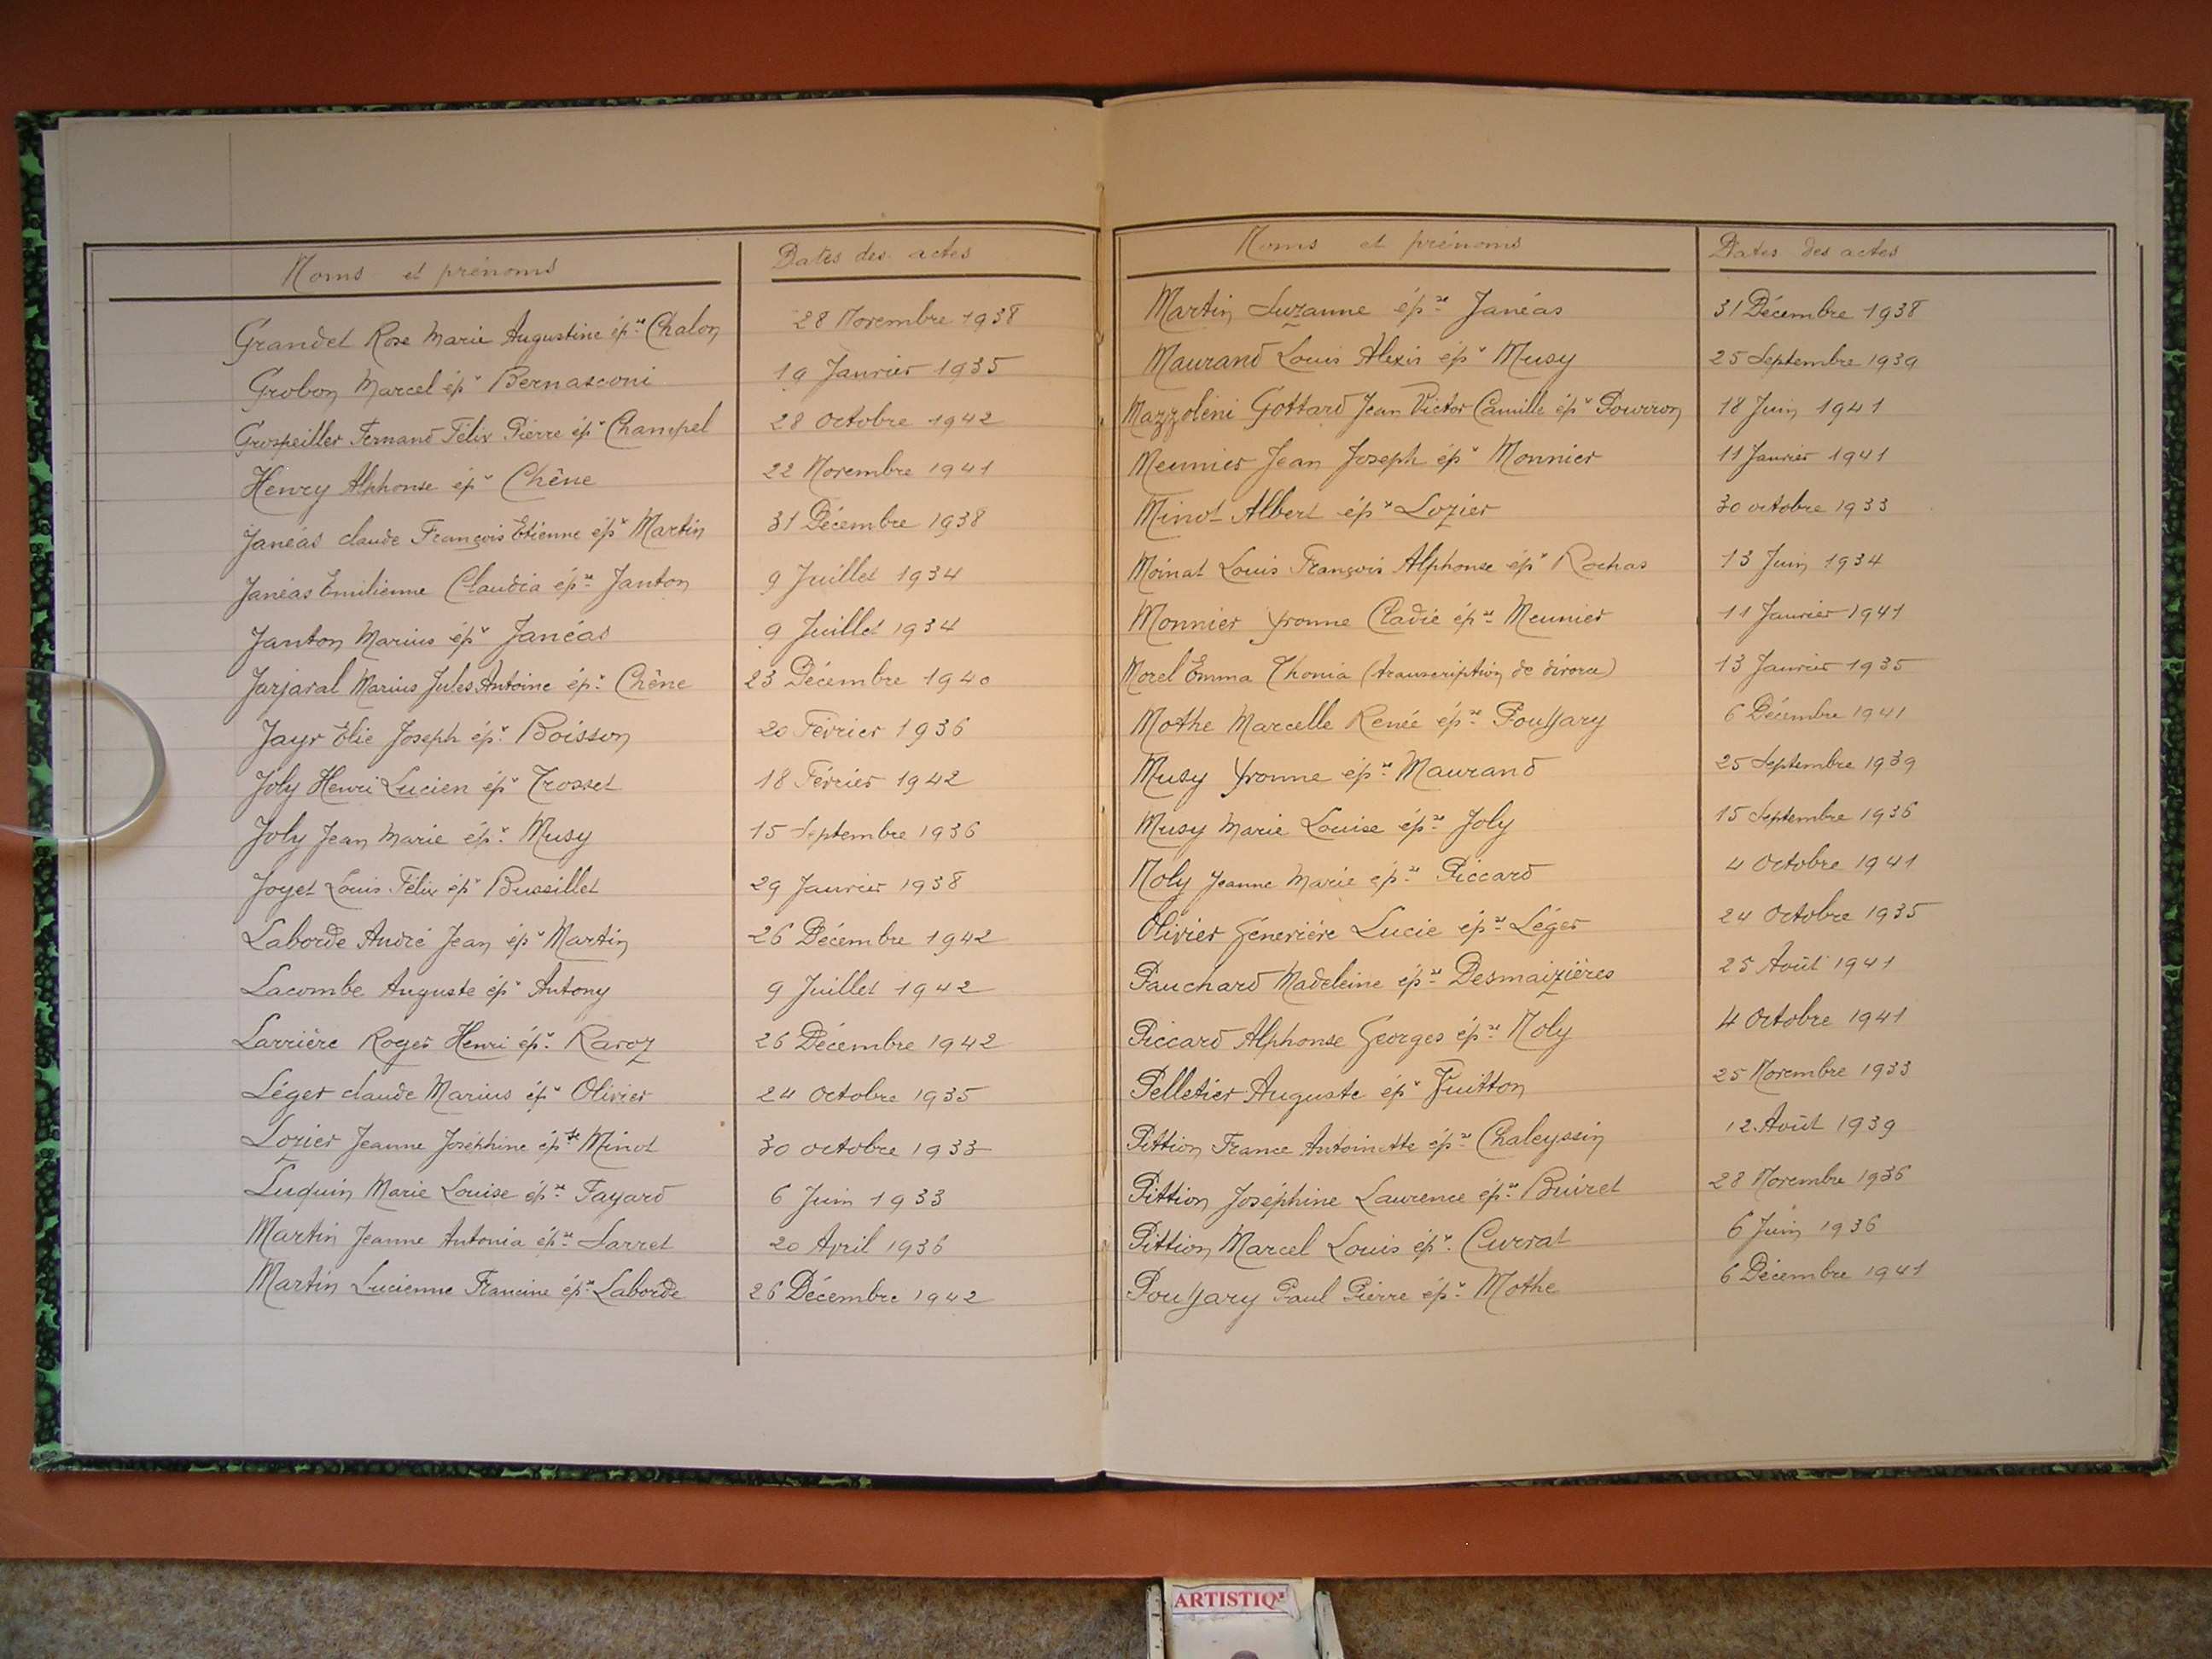 Noms et prénoms Dates des actes
Grandet Rose Marie Augustine ép.se Chalon 28 Novembre 1938
Grobon Marcel ép.x Bernasconi 19 Janvier 1935
Grospeiller Fernand Félix Pierre ép.x Champel 28 Octobre 1942
Henry Alphonse ép.x Chêne 22 Novembre 1941
Janéas claude François Etienne ép.x Martin 31 Décembre 1938
Janéas Emilienne Claudia ép.se Janton 9 Juillet 1934
Janton Marius ép.x Janéas 9 Juillet 1934
Jarjaval Marius Jules Antoine ép.x Chêne 23 Décembre 1940
Jayr Elie Joseph ép.x Boisson 20 Février 1936
Joly Henri Lucien ép.x Trosset 18 Février 1942
Joly Jean Marie ép.x Musy 15 Septembre 1936
Joyet Louis Félix ép.x Bussillet 29 Janvier 1938
Laborde André Jean ép.x Martin 26 Décembre 1942
Lacombe Auguste ép.x Antony 9 Juillet 1942
Larrière Roger Henri ép.x Ravoz 26 Décembre 1942
Léger claude Marius ép.x Olivier 24 Octobre 1935
Lozier Jeanne Joséphine ép.se Minot 30 octobre 1933
Luquin Marie Louise ép.se Fayard 6 Juin 1933
Martin Jeanne Antonia ép.se Larret 20 Avril 1936
Martin Lucienne Francine ép.se Laborde 26 Décembre 1942
Noms et prénoms Dates des actes
Martin Suzanne ép.se Janéas 31 Décembre 1938
Maurand Louis Alexis ép.x Musy 25 Septembre 1939
Mazzoleni Gottard Jean Victor Camille ép.x Pourron 18 Juin 1941
Meunier Jean Joseph ép.x Monnier 11 Janvier 1941
Minot Albert ép.x Lozier 30 octobre 1933
Moinat Louis François Alphonse ép.x Rochas 13 Juin 1934
Monnier Yvonne Cladie ép.se Meunier 11 Janvier 1941
Morel Emma Thonia (transcription de divorce) 13 Janvier 1935
Mothe Marcelle Renée ép.se Poussary 6 Décembre 1941
Musy Yvonne ép.se Maurand 25 Septembre 1939
Musy Marie Louise ép.se Joly 15 Septembre 1936
Noly Jeanne Marie ép.se Piccard 4 Octobre 1941
Olivier Geneviève Lucie ép.se Léger 24 Octobre 1935
Pauchard Madeleine ép.se Desmaizières 25 Août 1941
Piccard Alphonse Georges ép.se Noly 4 Octobre 1941
Pelletier Auguste ép.x Guitton 25 Novembre 1933
Pittion France Antoinette ép.se Chaleyssin 12 Août 1939
Pittion Joséphine Laurence ép.se Buiret 28 Novembre 1936
Pittion Marcel Louis ép.x Currat 6 Juin 1936
Poussary Paul Pierre ép.x Mothe 6 Décembre 1941
ARTISTIQ